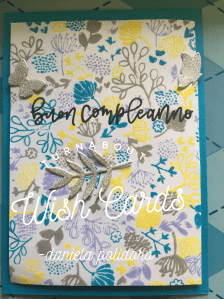 buon compleanno
TURNABOUT
Wish Cards
-daniela polidaro